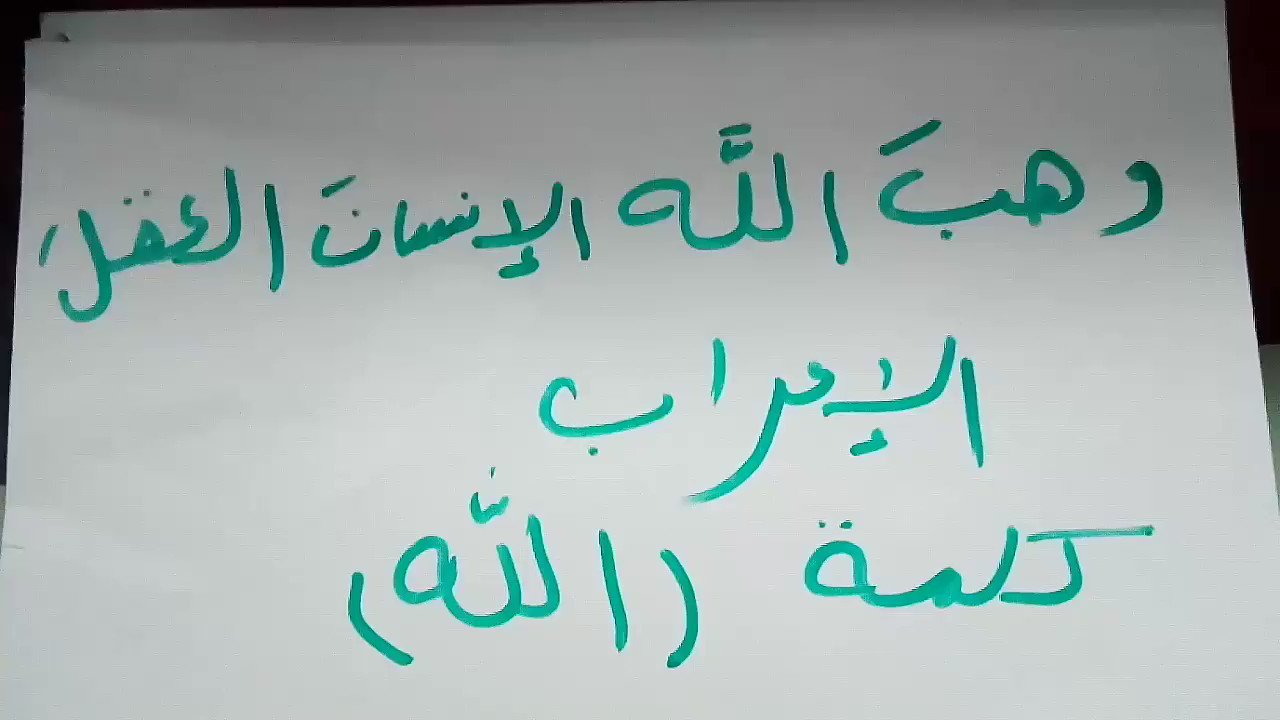 وهبَ اللَّه الإنسانَ العقل،
الإعراب
كلمة (اللّه)